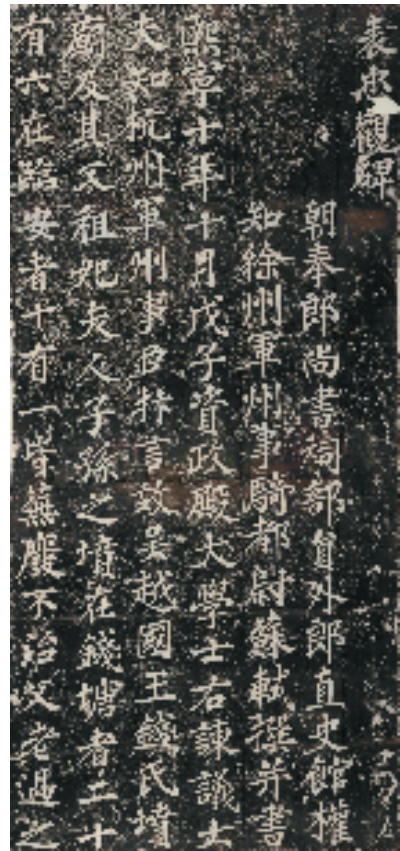 表忠觀碑
朝奉郎尚書祠部員外郎直史館權
知徐州軍州事騎都尉蘇軾撰并書
熙寧十年十月戊子資政殿大學士右諫議大
夫知杭州軍州事臣抃言故吳越國王錢氏墳
廟及其父祖妃夫人子孫之墳在錢塘者二十
有六在臨安者十有一皆蕪廢不治父老過之